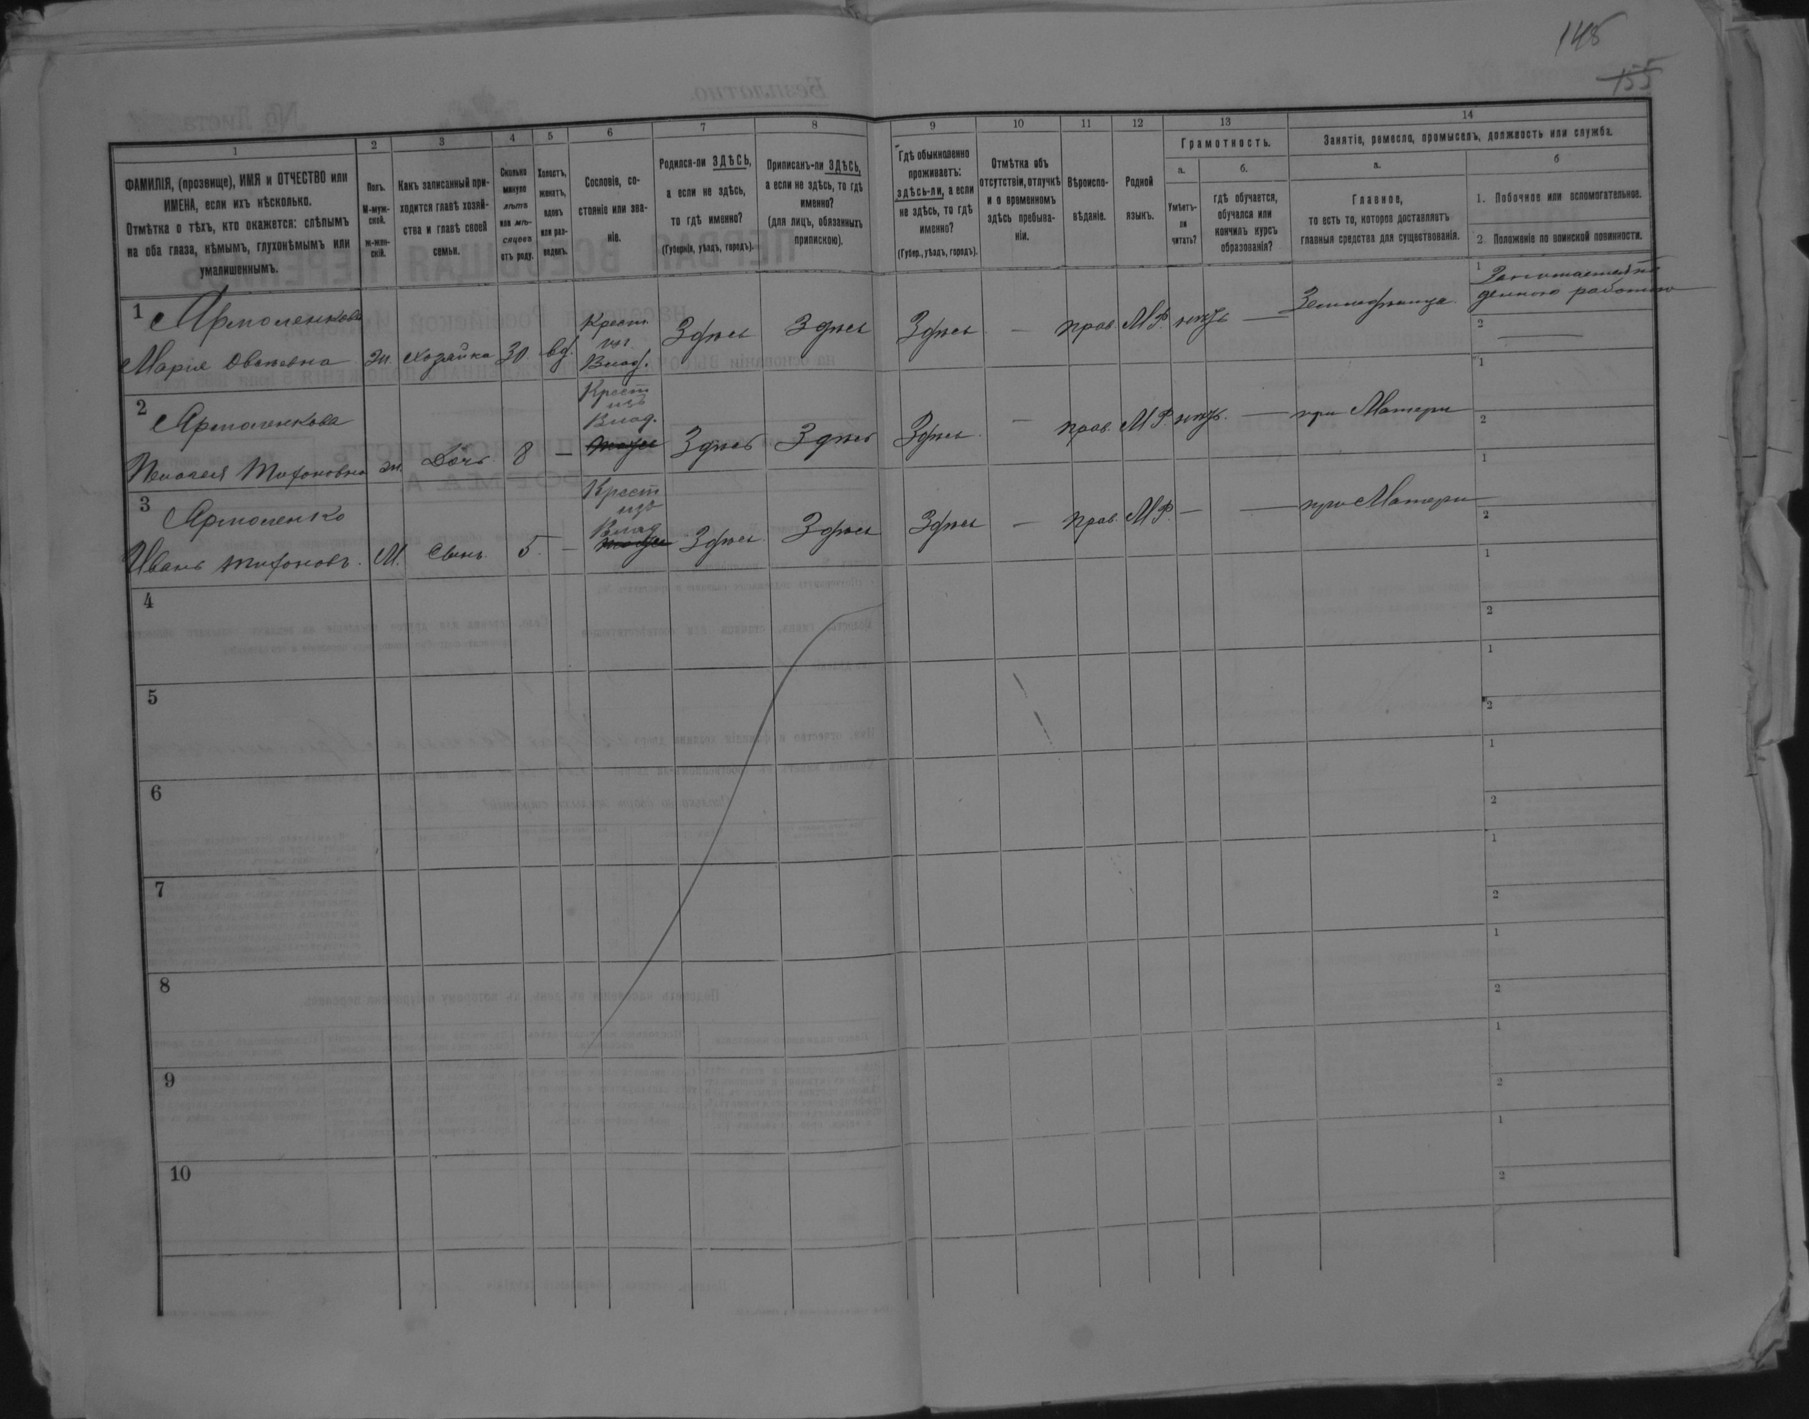 148
155
1
2
3
4
5
6
7
8
9
10
11
12
13
14
ФАМИЛІЯ, (прозвище), ИМЯ и ОТЧЕСТВО или
ИМЕНА, если ихъ нѣсколько.
Отмѣтка о тѣхъ, кто окажется: слѣпымъ
на оба глаза, нѣмымъ, глухонѣмымъ или
умалишеннымъ.
Полъ.
М-муж-
ской.
ж-жен-
скій.
Какъ записанный при-
ходится главѣ хозяй-
ства и главѣ своей
семьи.
Сколько
минуло
лѣтъ
или мѣ-
сяцевъ
отъ роду.
Холостъ,
женатъ,
вдовъ
или раз-
веденъ.
Сословіе, со-
стояніе или зва-
ніе.
Родился-ли ЗДѢСЬ,
а если не здѣсь,
то гдѣ именно?
(Губернія, уѣздъ, городъ).
Приписанъ-ли ЗДѢСЬ,
а если не здѣсь, то гдѣ
именно?
(для лицъ, обязанныхъ
припискою).
Гдѣ обыкновенно
проживаетъ:
здѣсь-ли, а если
не здѣсь, то гдѣ
именно?
(Губер., уѣздъ, городъ).
Отмѣтка объ
отсутствіи, отлучкѣ
и о временномъ
здѣсь пребыва-
ніи.
Вѣроиспо-
вѣданіе.
Родной
языкъ.
Грамотность.
а.
Умѣетъ-
ли
читать?
б.
гдѣ обучается,
обучался или
кончилъ курсъ
образованія?
Занятіе, ремесло, промыселъ, должность или служба.
а.
Главное,
то есть то, которое доставляетъ
главныя средства для существованія.
б
1. Побочное или вспомогательное.
2. Положеніе по воинской повинности.
1 Ярмоленкова
Марія ж. хозяйка 30 вд. Крест. изъ Влад. Здѣсь Здѣсь Здѣсь — прав. М.Р. нѣтъ —
1
денною работою
2 —
2 Ярмоленкова
Пелагея ж. Дочь 8 — Крест изъ Влад. Здѣсь Здѣсь Здѣсь — прав. М.Р. нѣтъ. — при Матери
1
2
3 Ярмоленко
Иванъ М. Сынъ 5. — Крест изъ Влад Здѣсь Здѣсь Здѣсь — прав. М.Р. — — при Матери
1
2
4
1
2
5
1
2
6
1
2
7
1
2
8
1
2
9
1
2
10
1
2